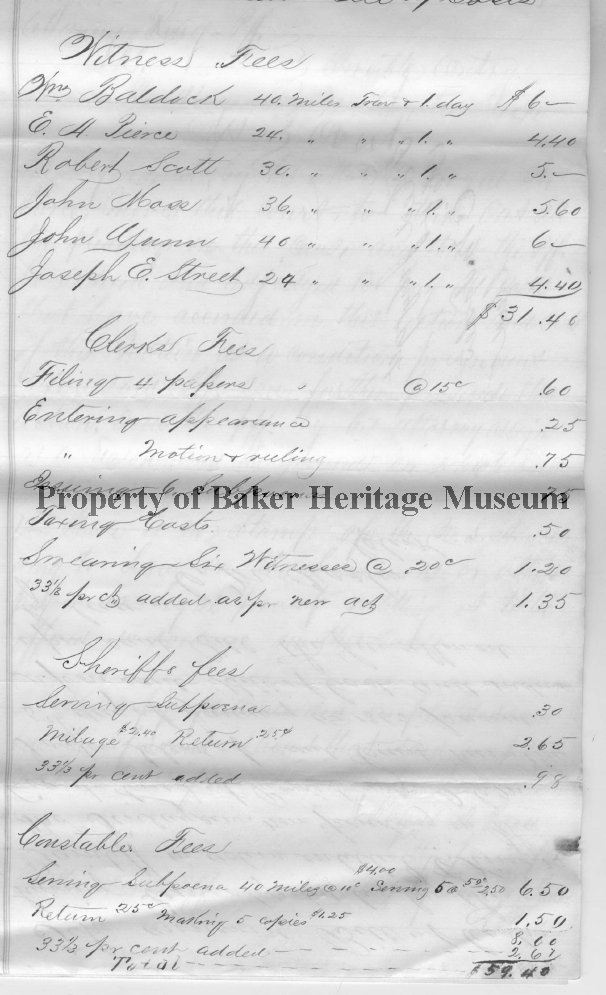 Costs
Witness Fees
Wm Baldock 40. miles Trav & 1. day $6—
E. H. Pierce 24. " " " 1. " 4.40
Robert Scott 30. " " " 1. " 5.—
John Moss 36. " " " 1. " 5.60
John Gunn 40 " " " 1. " 6—
Joseph E. Street 24 " " " 1. " 4.40
$31.40
Clerks Fees
Filing 4 papers @ 15c .60
Entering appearance .25
" Motion & ruling .75
Property of Baker Heritage Museum
Issuing 6 .75
Taxing Costs. .50
Swearing Six Witnesses @ .20c 1.20
33 1/3 pr ct added as pr new act 1.35
Sheriffs fees
Serving Subpoena .30
Milage $2.40 Return .25c 2.65
33 1/3 pr cent added .98
Constable Fees
Serving Subpoena 40 Miles @ 10c $4.00 Serving 5 @ .50c 2.50 6.50
Return 25c Making 5 copies $1.25 1.50
8.00
33 1/3 pr cent added 2.67
Total $59.40